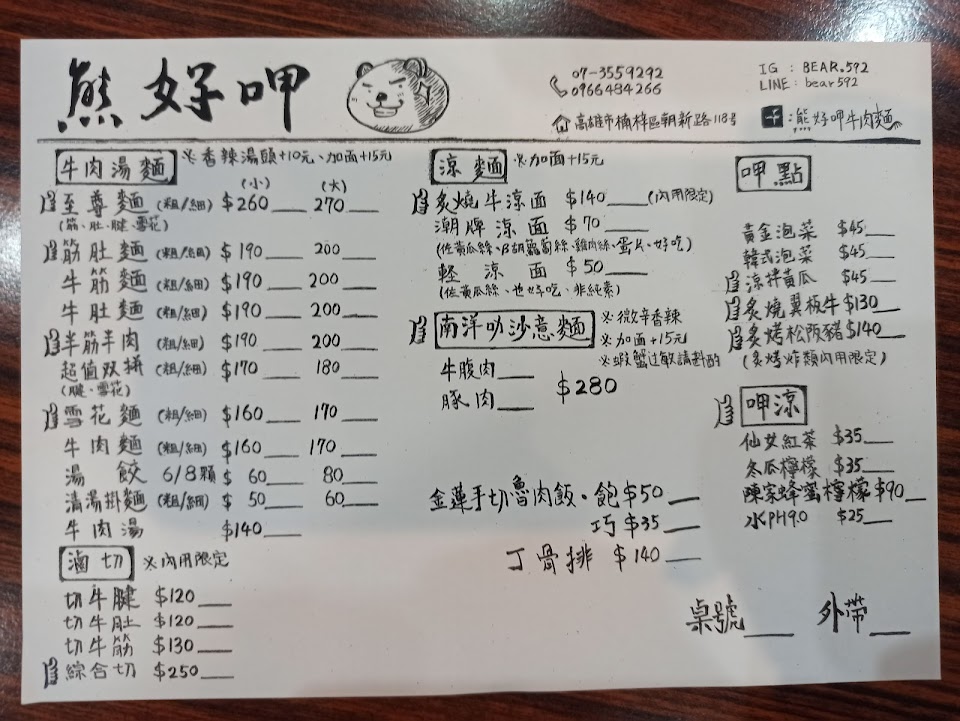 熊好呷
07-3559292
0966484266
高雄市楠梓區朝新路118号
IG : BEAR.592
LINE : bear592
:熊好呷牛肉麵
牛肉湯麵 ※香辣湯頭+10元、加面+15元
(小) (大)
至尊麵 (粗/細) $260 ___ 270 ___
(筋、肚、腱、雪花)
筋肚麵 (粗/細) $190 ___ 200 ___
牛筋麵 (粗/細) $190 ___ 200 ___
牛肚麵 (粗/細) $190 ___ 200 ___
半筋半肉 (粗/細) $190 ___ 200 ___
超值双拼 (粗/細) $170 ___ 180 ___
(腱、雪花)
雪花麵 (粗/細) $160 ___ 170 ___
牛肉麵 (粗/細) $160 ___ 170 ___
湯餃 6/8顆 $60 ___ 80 ___
清湯掛麵 (粗/細) $50 ___ 60 ___
牛肉湯 $140 ___
滷切 ※內用限定
切牛腱 $120 ___
切牛肚 $120 ___
切牛筋 $130 ___
綜合切 $250 ___
涼麵 ※加面+15元
炙燒牛涼面 $140 ___ (內用限定)
潮牌涼面 $70 ___
(佐黃瓜絲、紅胡蘿蔔絲、雞肉絲、蛋片、好吃)
軽涼面 $50 ___
(佐黃瓜絲、也好吃、非純素)
南洋叻沙意麵 ※微辛香辣
※加面+15元
※蝦蟹过敏請斟酌
牛腹肉 ___
豚肉 ___
$280
金蓮手切魯肉飯·飽 $50 ___
巧 $35 ___
丁骨排 $140 ___
呷點
黃金泡菜 $45 ___
韓式泡菜 $45 ___
涼拌黃瓜 $45 ___
炙燒翼板牛 $130 ___
炙烤松阪豬 $140 ___
(炙烤炸類內用限定)
呷涼
仙女紅茶 $35 ___
冬瓜檸檬 $35 ___
陳家蜂蜜檸檬 $90 ___
水PH9.0 $25 ___
桌號 ___ 外帶 ___